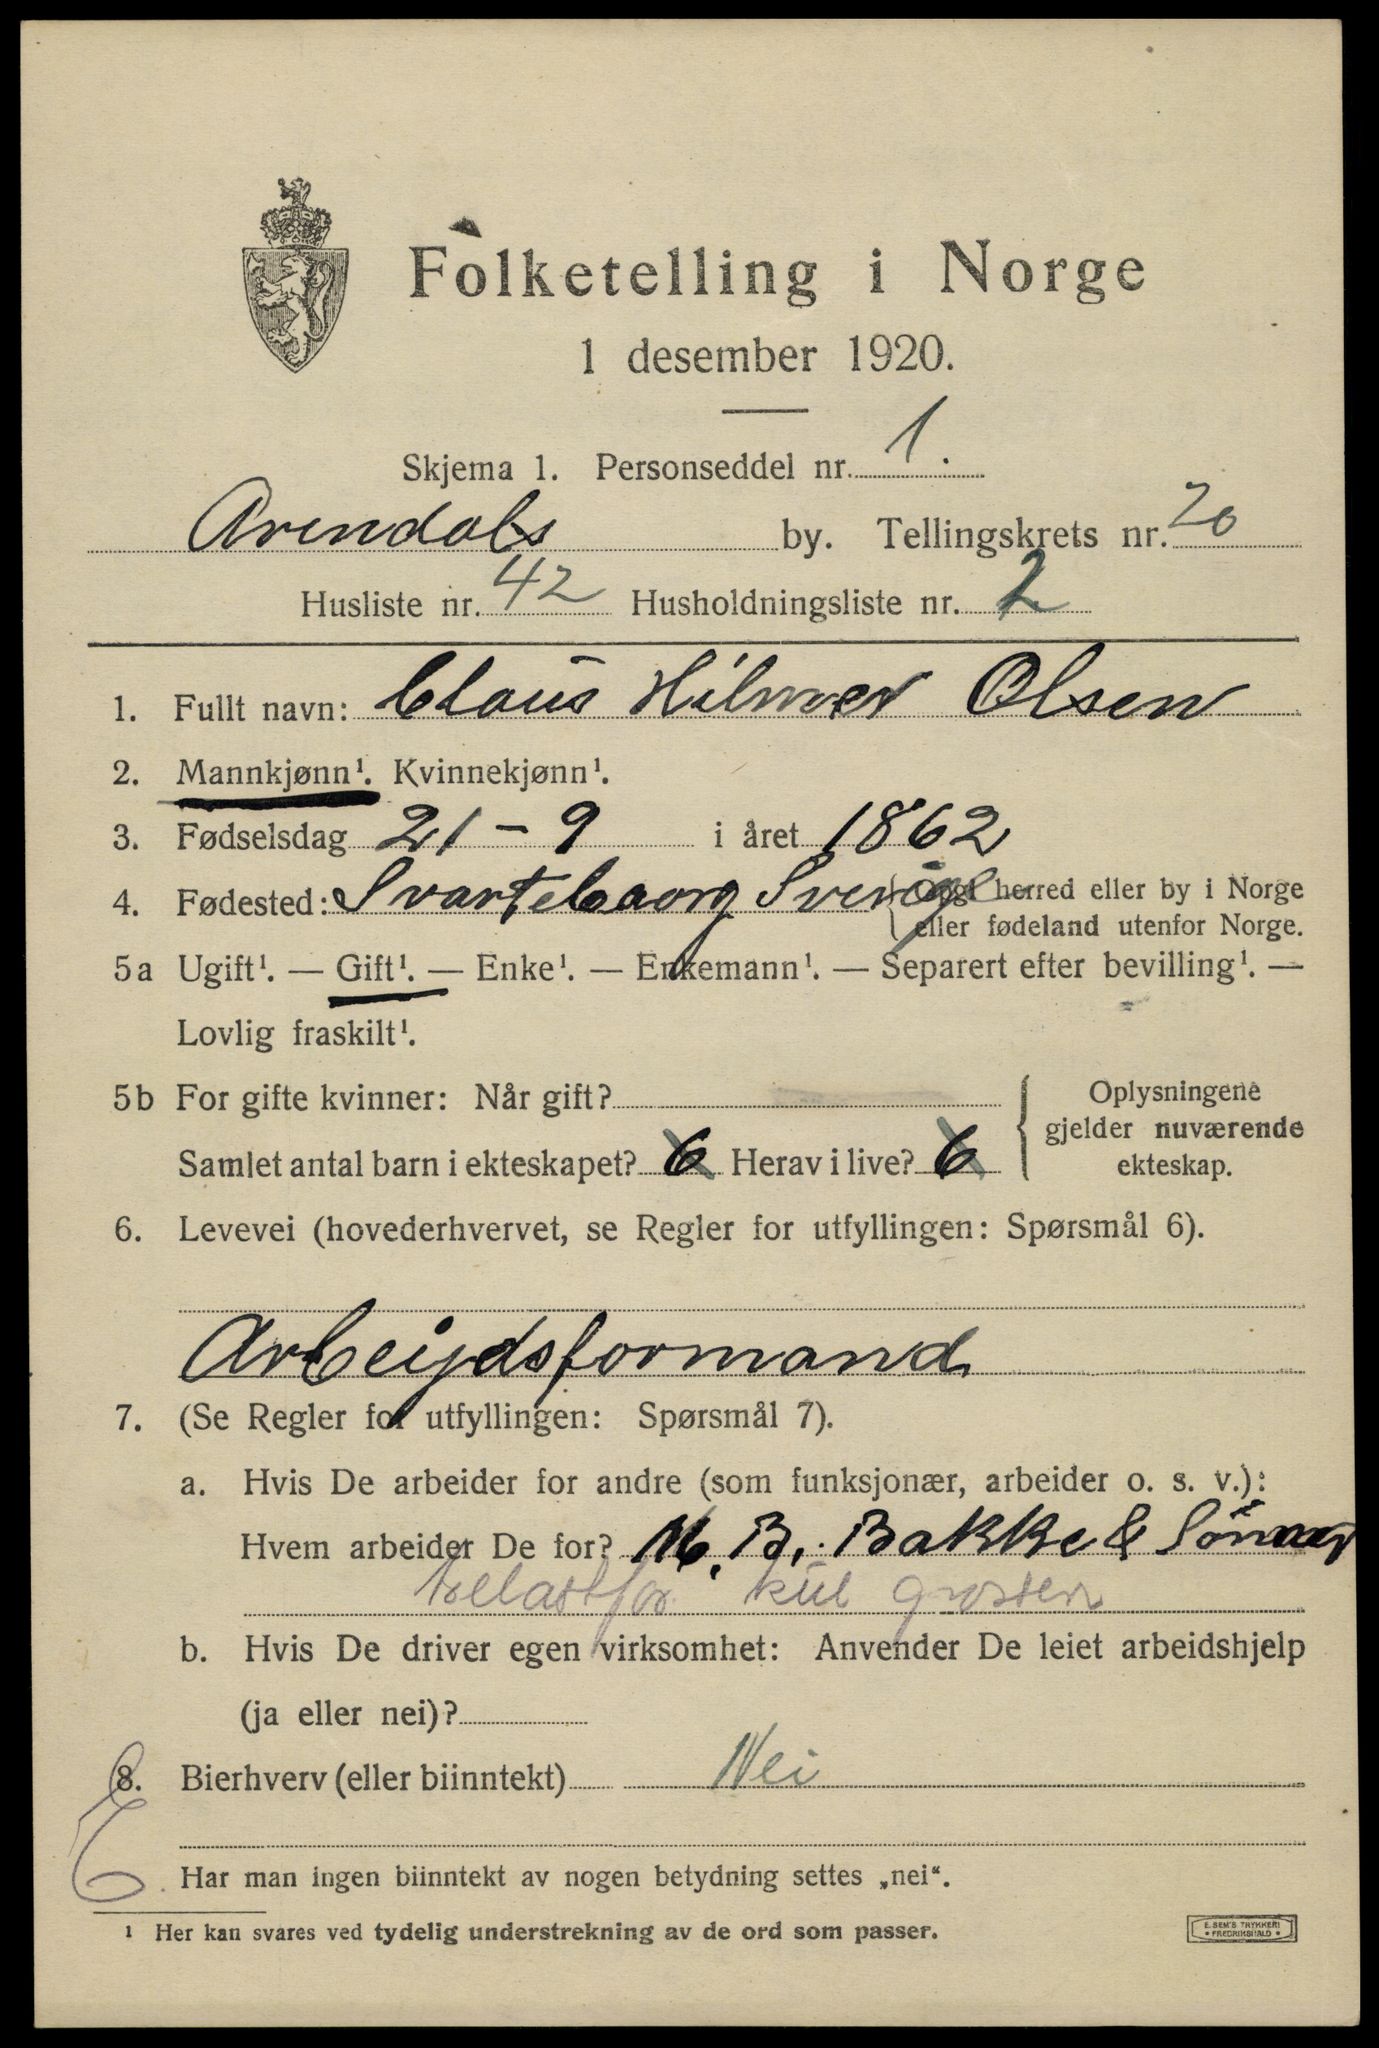 Folketelling i Norge
1 desember 1920.
Skjema 1. Personseddel nr. 1.
Arendals by. Tellingskrets nr. 20
Husliste nr. 42 Husholdningsliste nr. 2
1. Fullt navn: Claus Hilmer Olsen
2. Mannkjønn¹. Kvinnekjønn¹.
3. Fødselsdag 21 - 9 i året 1862
4. Fødested: Svarteborg Sverige {Opgi herred eller by i Norge
eller fødeland utenfor Norge.
5a Ugift¹. — Gift¹. — Enke¹. — Enkemann¹. — Separert efter bevilling¹. —
Lovlig fraskilt¹.
5b For gifte kvinner: Når gift?
Samlet antal barn i ekteskapet? 6 Herav i live? 6
Oplysningene
gjelder nuværende
ekteskap.
6. Levevei (hovederhvervet, se Regler for utfyllingen: Spørsmål 6).
Arbeijdsformand
7. (Se Regler for utfyllingen: Spørsmål 7).
a. Hvis De arbeider for andre (som funksjonær, arbeider o. s. v.):
Hvem arbeider De for? M. B. Bakke & Sönner
trelastfor kul grosser
b. Hvis De driver egen virksomhet: Anvender De leiet arbeidshjelp
(ja eller nei)?
8. Bierhverv (eller biinntekt) Nei
Har man ingen biinntekt av nogen betydning settes „nei“.
¹ Her kan svares ved tydelig understrekning av de ord som passer.
E. SEM'S TRYKKERI
• FREDRIKSHALD •